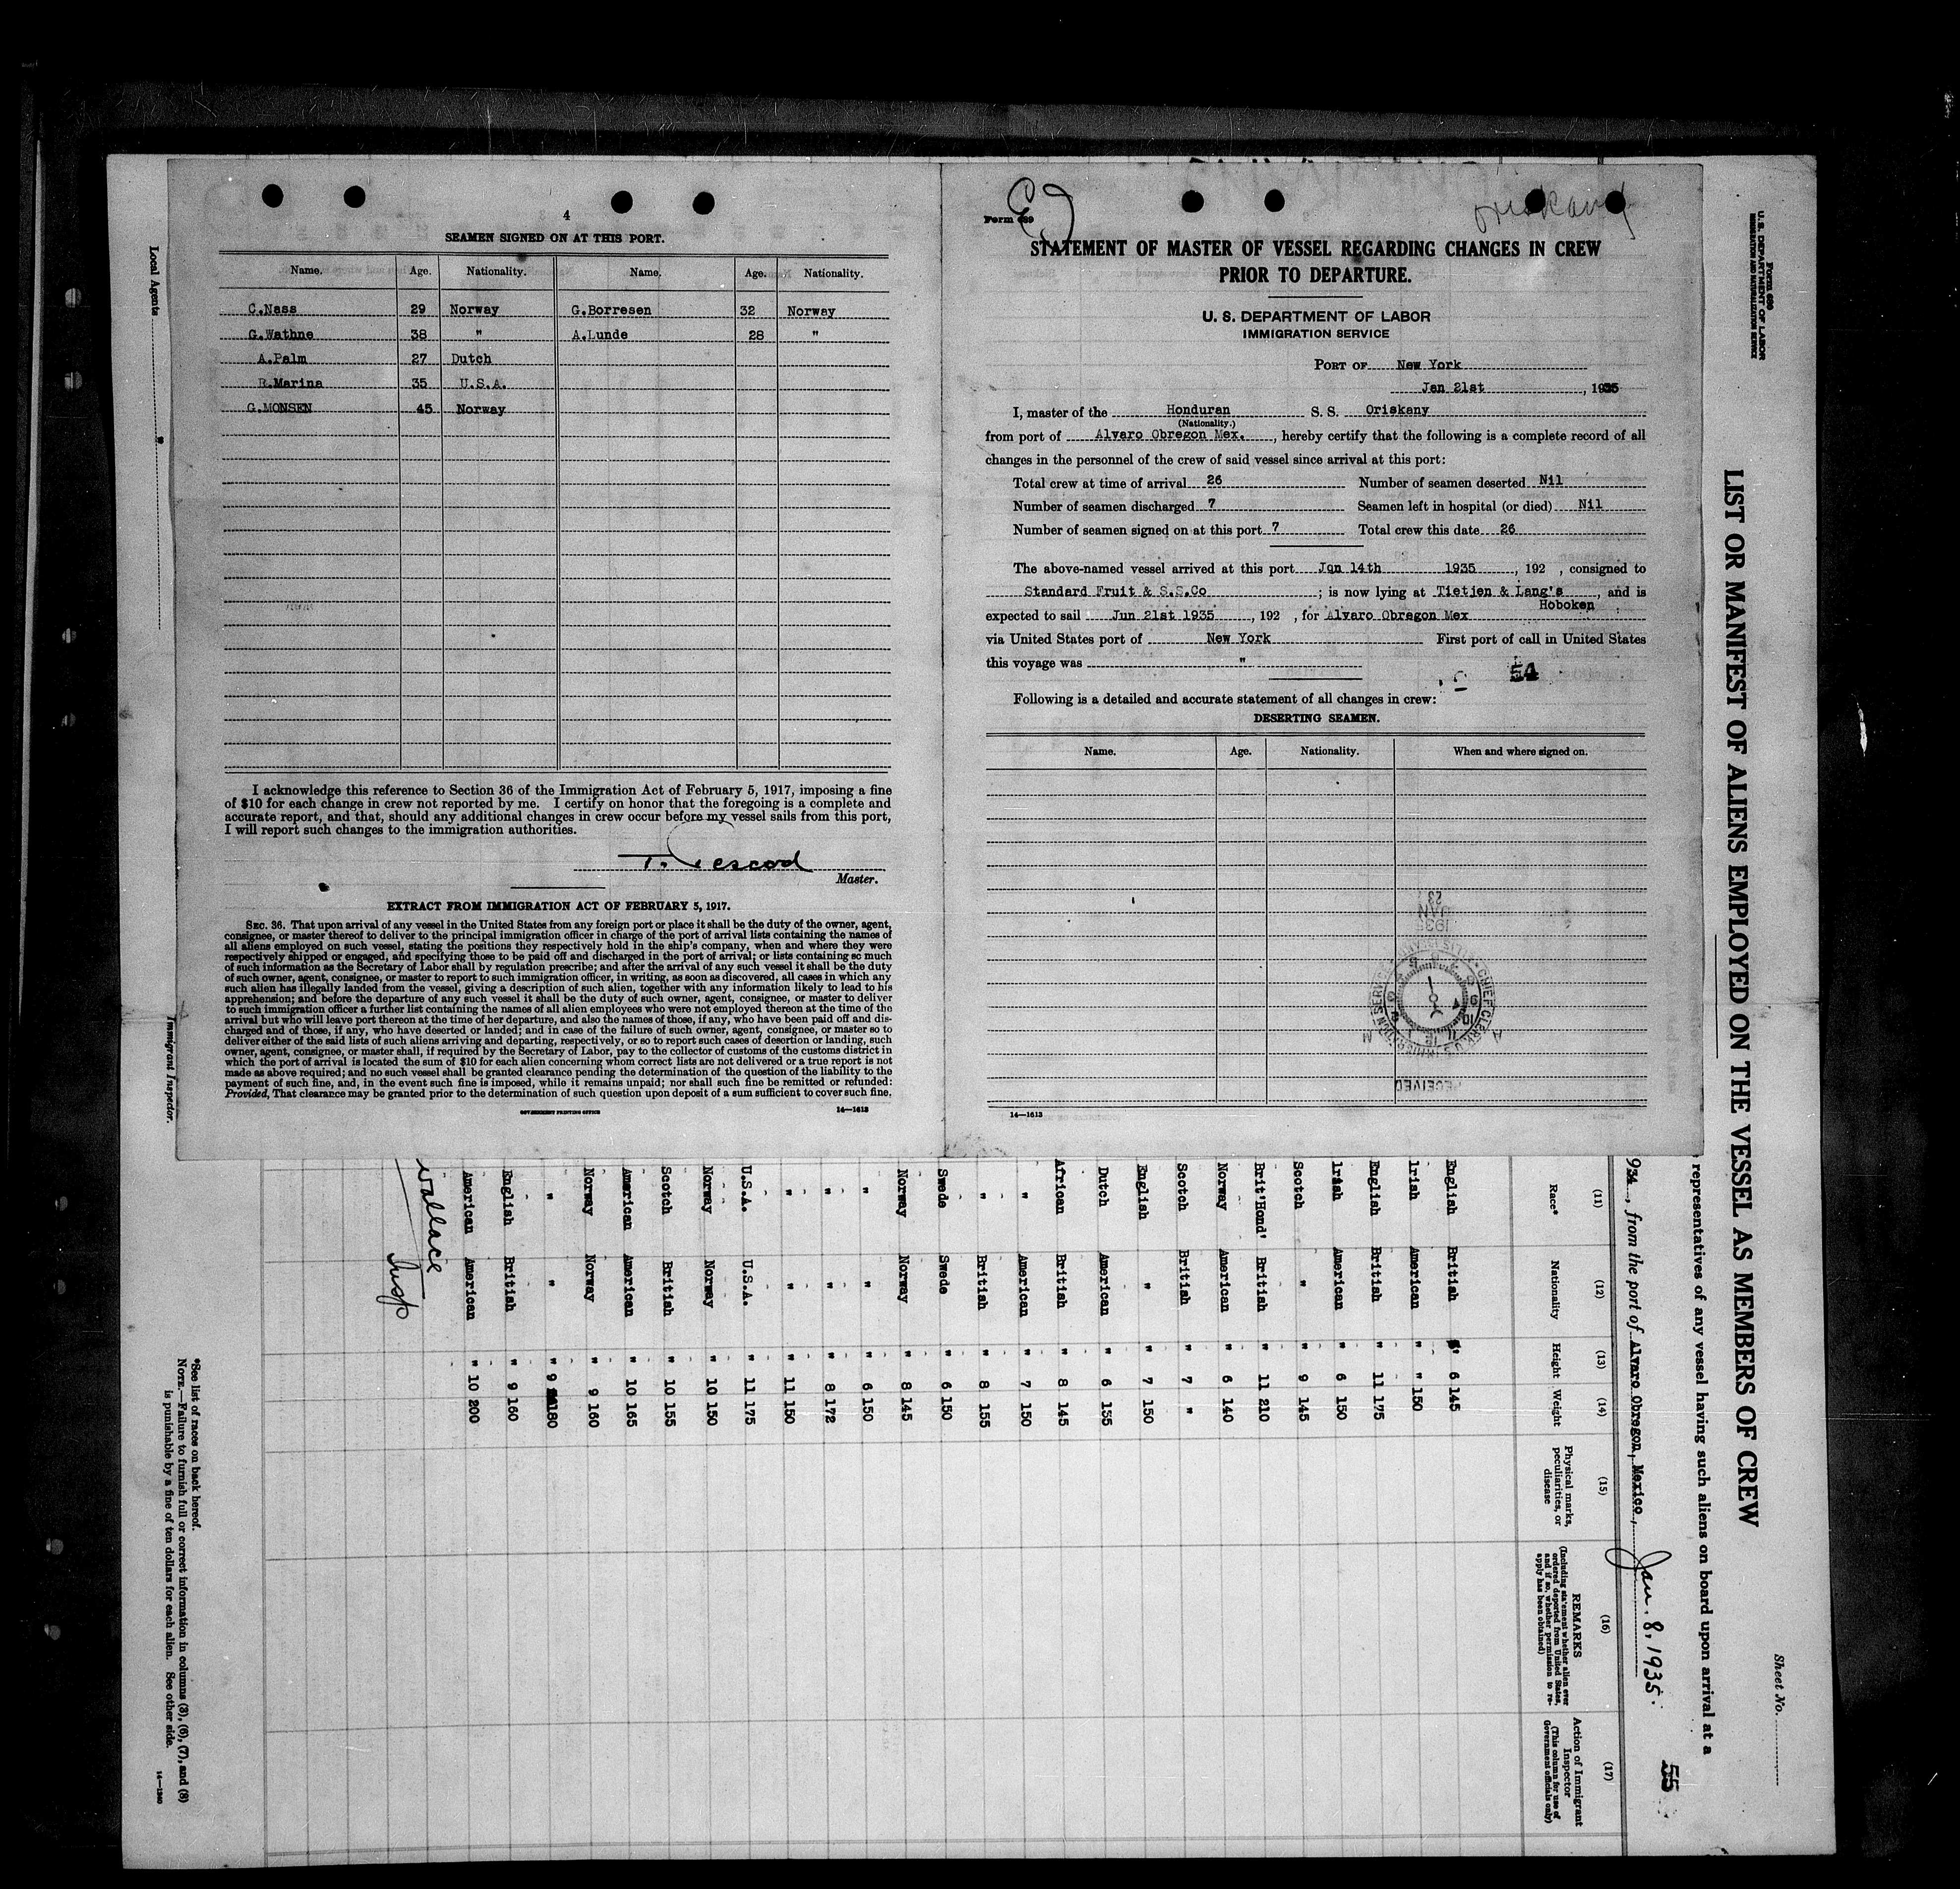 4
SEAMEN SIGNED ON AT THIS PORT.
Name. Age. Nationality. Name. Age. Nationality.
C.Nass 29 Norway G.Borresen 32 Norway
G.Wathne 38 " A.Lunde 28 "
A.Palm 27 Dutch
R.Marina 35 U.S.A.
G.MONSEN 45 Norway
I acknowledge this reference to Section 36 of the Immigration Act of February 5, 1917, imposing a fine
of $10 for each change in crew not reported by me. I certify on honor that the foregoing is a complete and
accurate report, and that, should any additional changes in crew occur before my vessel sails from this port,
I will report such changes to the immigration authorities.
T.
Master.
EXTRACT FROM IMMIGRATION ACT OF FEBRUARY 5, 1917.
SEC. 36. That upon arrival of any vessel in the United States from any foreign port or place it shall be the duty of the owner, agent,
consignee, or master thereof to deliver to the principal immigration officer in charge of the port of arrival lists containing the names of
all aliens employed on such vessel, stating the positions they respectively hold in the ship's company, when and where they were
respectively shipped or engaged, and specifying those to be paid off and discharged in the port of arrival; or lists containing so much
of such information as the Secretary of Labor shall by regulation prescribe; and after the arrival of any such vessel it shall be the duty
of such owner, agent, consignee, or master to report to such immigration officer, in writing, as soon as discovered, all cases in which any
such alien has illegally landed from the vessel, giving a description of such alien, together with any information likely to lead to his
apprehension; and before the departure of any such vessel it shall be the duty of such owner, agent, consignee, or master to deliver
to such immigration officer a further list containing the names of all alien employees who were not employed thereon at the time of the
arrival but who will leave port thereon at the time of her departure, and also the names of those, if any, who have been paid off and dis-
charged and of those, if any, who have deserted or landed; and in case of the failure of such owner, agent, consignee, or master so to
deliver either of the said lists of such aliens arriving and departing, respectively, or so to report such cases of desertion or landing, such
owner, agent, consignee, or master shall, if required by the Secretary of Labor, pay to the collector of customs of the customs district in
which the port of arrival is located the sum of $10 for each alien concerning whom correct lists are not delivered or a true report is not
made as above required; and no such vessel shall be granted clearance pending the determination of the question of the liability to the
payment of such fine, and, in the event such fine is imposed, while it remains unpaid; nor shall such fine be remitted or refunded:
Provided, That clearance may be granted prior to the determination of such question upon deposit of a sum sufficient to cover such fine.
GOVERNMENT PRINTING OFFICE 14—1613
Form 689
Oriskany
STATEMENT OF MASTER OF VESSEL REGARDING CHANGES IN CREW
PRIOR TO DEPARTURE.
U. S. DEPARTMENT OF LABOR
IMMIGRATION SERVICE
PORT OF New York
Jan 21st, 1935
I, master of the Honduran S. S. Oriskany
(Nationality.)
from port of Alvaro Obregon Mex., hereby certify that the following is a complete record of all
changes in the personnel of the crew of said vessel since arrival at this port:
Total crew at time of arrival 26 Number of seamen deserted Nil
Number of seamen discharged 7 Seamen left in hospital (or died) Nil
Number of seamen signed on at this port 7 Total crew this date 26
The above-named vessel arrived at this port Jan 14th 1935, 192 , consigned to
Standard Fruit & S.S.Co ; is now lying at Tietjen & Lang's, and is
Hoboken
expected to sail Jun 21st 1935, 192 , for Alvaro Obregon Mex ;
via United States port of New York First port of call in United States
this voyage was "
54
Following is a detailed and accurate statement of all changes in crew:
DESERTING SEAMEN.
Name. Age. Nationality. When and where signed on.
RECEIVED
1935
JAN
23
14—1613
Local Agents
Immigrant Inspector.
Form 689
U. S. DEPARTMENT OF LABOR
IMMIGRATION AND NATURALIZATION SERVICE
Sheet No.
LIST OR MANIFEST OF ALIENS EMPLOYED ON THE VESSEL AS MEMBERS OF CREW
representatives of any vessel having such aliens on board upon arrival at a
55
934, from the port of Alvaro Obregon, Mexico, Jan. 8, 1935.
(11) (12) (13) (14) (15) (16) (17)
Race* Nationality Height Weight Physical marks, peculiarities, or disease REMARKS (Including statement whether alien ever ordered deported from United States, and if so, whether permission to reapply has been obtained) Action of Immigrant Inspector (This column for use of Government officials only)
English British 6 145
Irish American " " 150
English British " 11 175
Irish American " 6 150
Scotch " " 9 145
Brit'Hond' British " 11 210
Norway American " 6 140
Scotch British " 7 "
English " " 7 150
Dutch American " 6 135
African British " 8 145
" American " 7 150
" British " 8 155
Swede Swede " 6 150
Norway Norway " 8 145
" " " 6 150
" " " 8 172
" " " 11 150
U.S.A. U.S.A. " 11 175
Norway Norway " 10 150
Scotch British " 10 155
American American " 10 165
Norway Norway " 9 160
" " " 9 180
English British " 9 160
American American " 10 200
Wallace
Insp
*See list of races on back hereof.
NOTE.—Failure to furnish full or correct information in columns (3), (6), (7), and (8)
is punishable by a fine of ten dollars for each alien. See other side.
14—1240